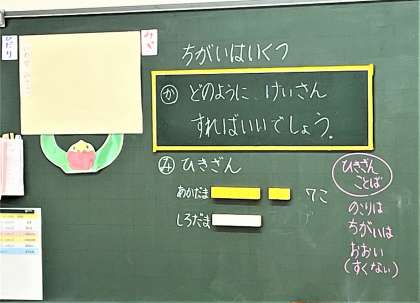 ひだり
みぎ
ちがいはいくつ
か どのように けいさん
すればいいでしょう。
み ひきざん
あかだま 7こ
しろだま
ひきざん
ことば
のこりは
ちがいは
おおい
(すくない)